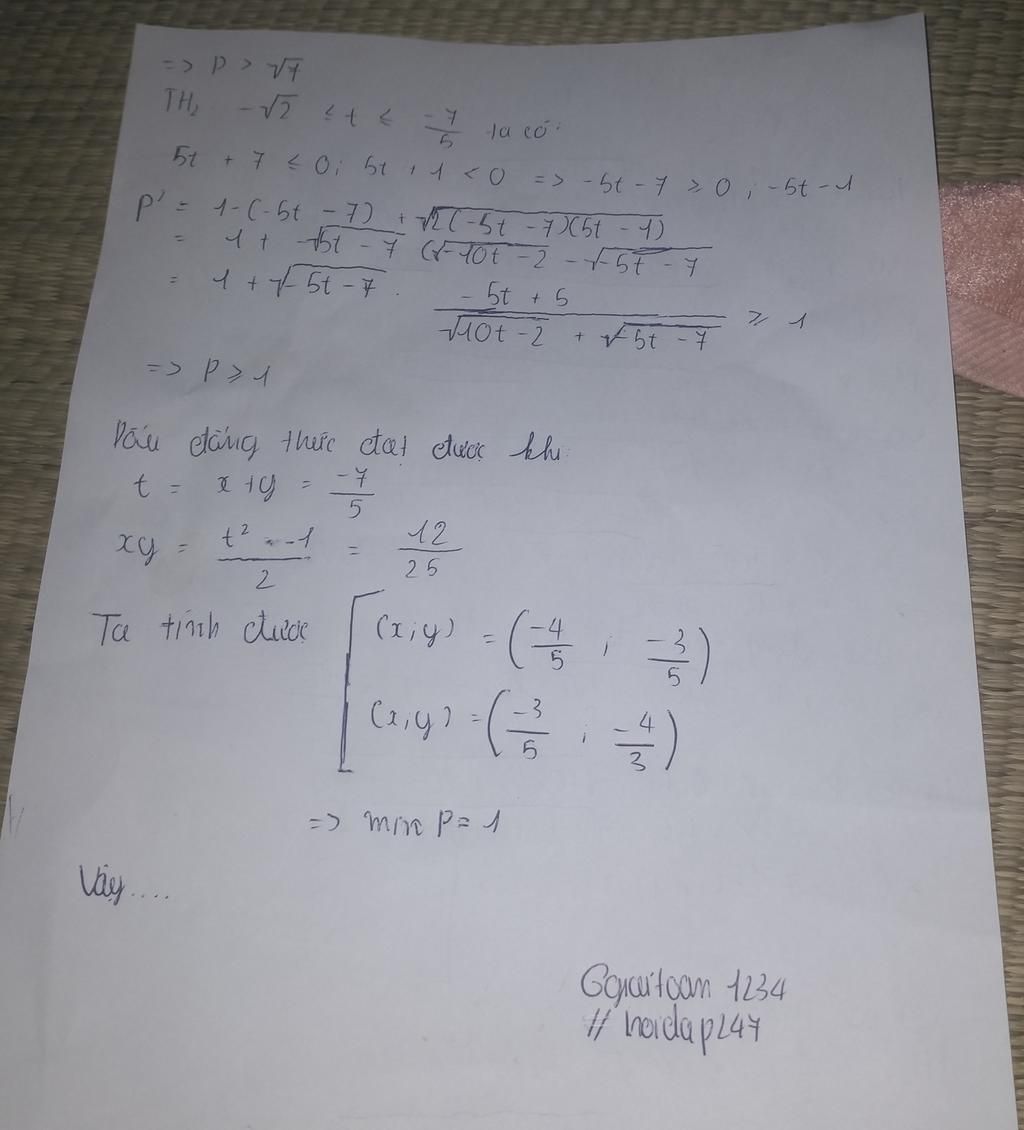 => P > √7
TH₂ -√2 ≤ t ≤ -7/5 ta có:
5t + 7 ≤ 0; 5t + 1 < 0 => -5t - 7 ≥ 0; -5t - 1
P' = 1-(-5t - 7) + √2(-5t - 7)(5t - 1)
= 1 + √-5t - 7 (√-10t - 2 - √-5t - 7
= 1 + √-5t - 7 . -5t + 5 / √10t - 2 + √-5t - 7 ≥ 1
=> P ≥ 1
Dấu đẳng thức đạt được khi:
t = x + y = -7/5
xy = t² - 1 / 2 = 12/25
Ta tính được [ (x;y) = (-4/5 ; -3/5)
(x;y) = (-3/5 ; -4/3)
=> min P = 1
Vậy....
1234
# hoidap247